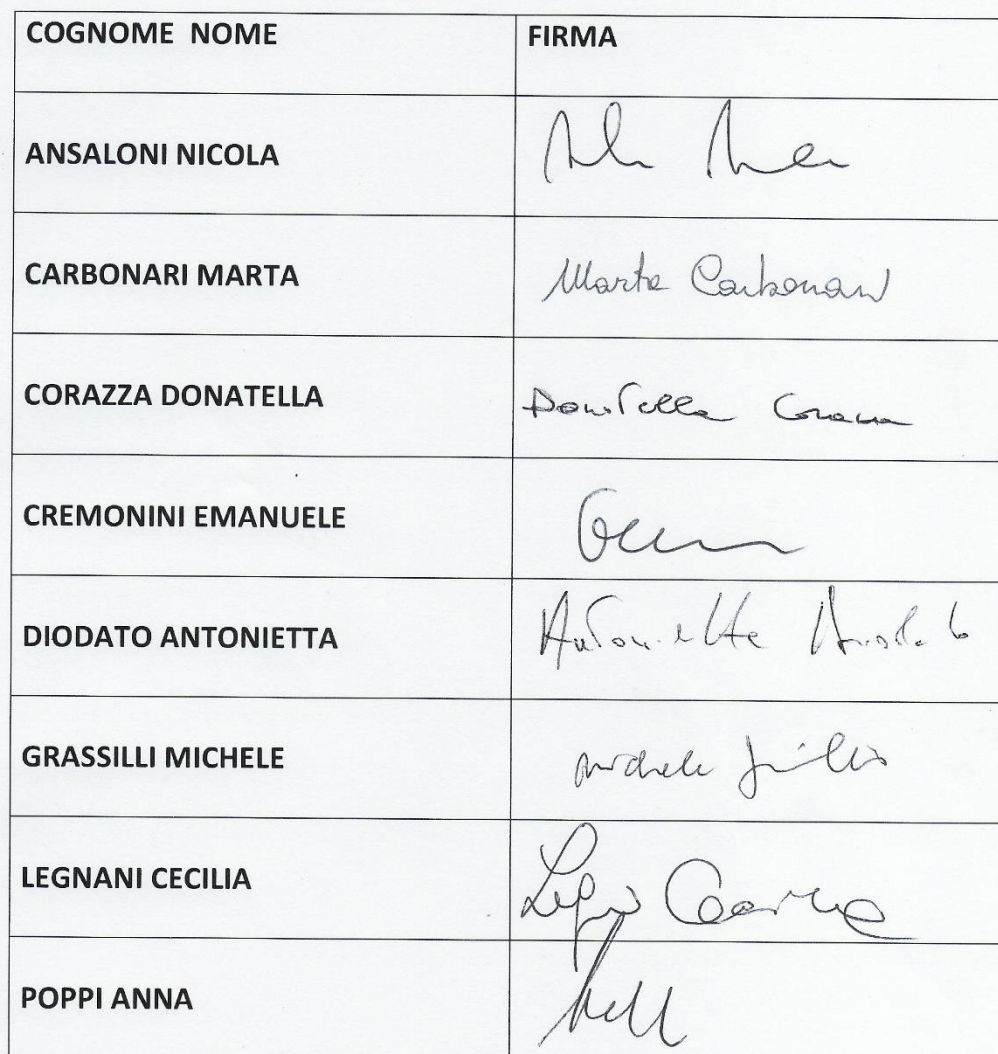 COGNOME NOME FIRMA
ANSALONI NICOLA
CARBONARI MARTA Marta Carbonari
CORAZZA DONATELLA Donatella Corazza
CREMONINI EMANUELE
DIODATO ANTONIETTA Antonietta Diodato
GRASSILLI MICHELE Michele
LEGNANI CECILIA
POPPI ANNA